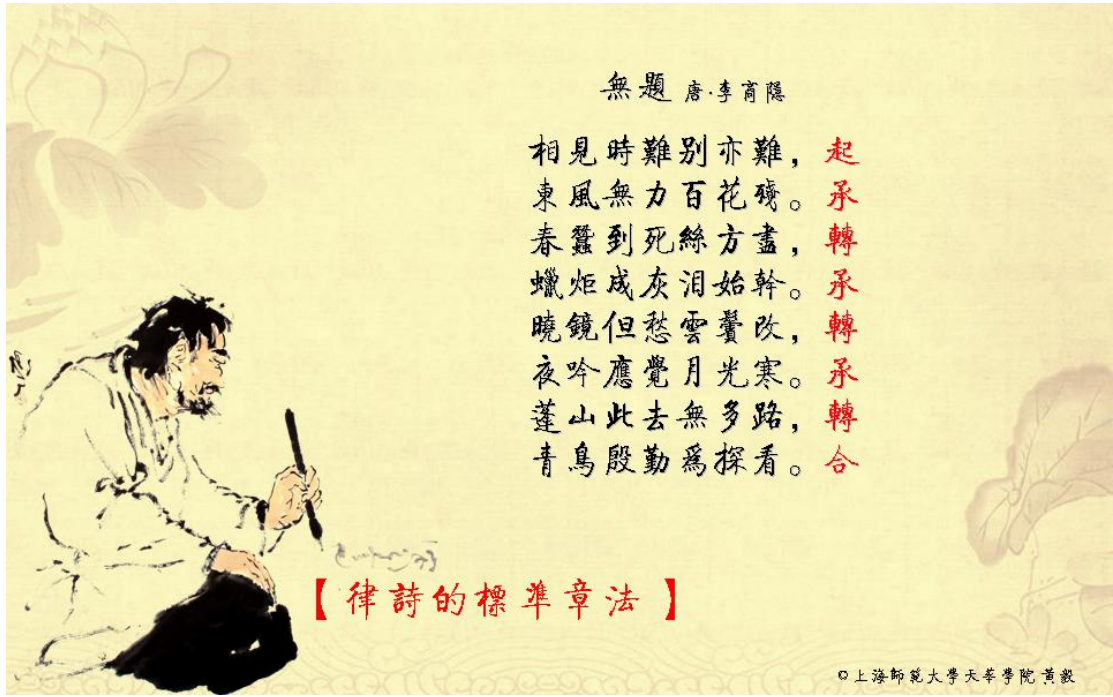 無題 唐·李商隱
相見時難别亦難，起
東風無力百花殘。承
春蠶到死絲方盡，轉
蠟炬成灰泪始幹。承
曉鏡但愁雲鬢改，轉
夜吟應覺月光寒。承
蓬山此去無多路，轉
青鳥殷勤爲探看。合
【律詩的標準章法】
©上海師範大學天華學院 黃毅